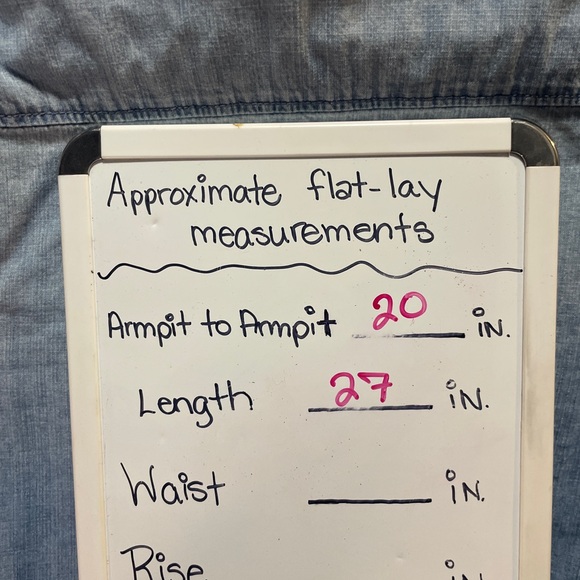 Approximate flat-lay
measurements
Armpit to Armpit 20 in.
Length 27 in.
Waist ____ in.
Rise ____ in.